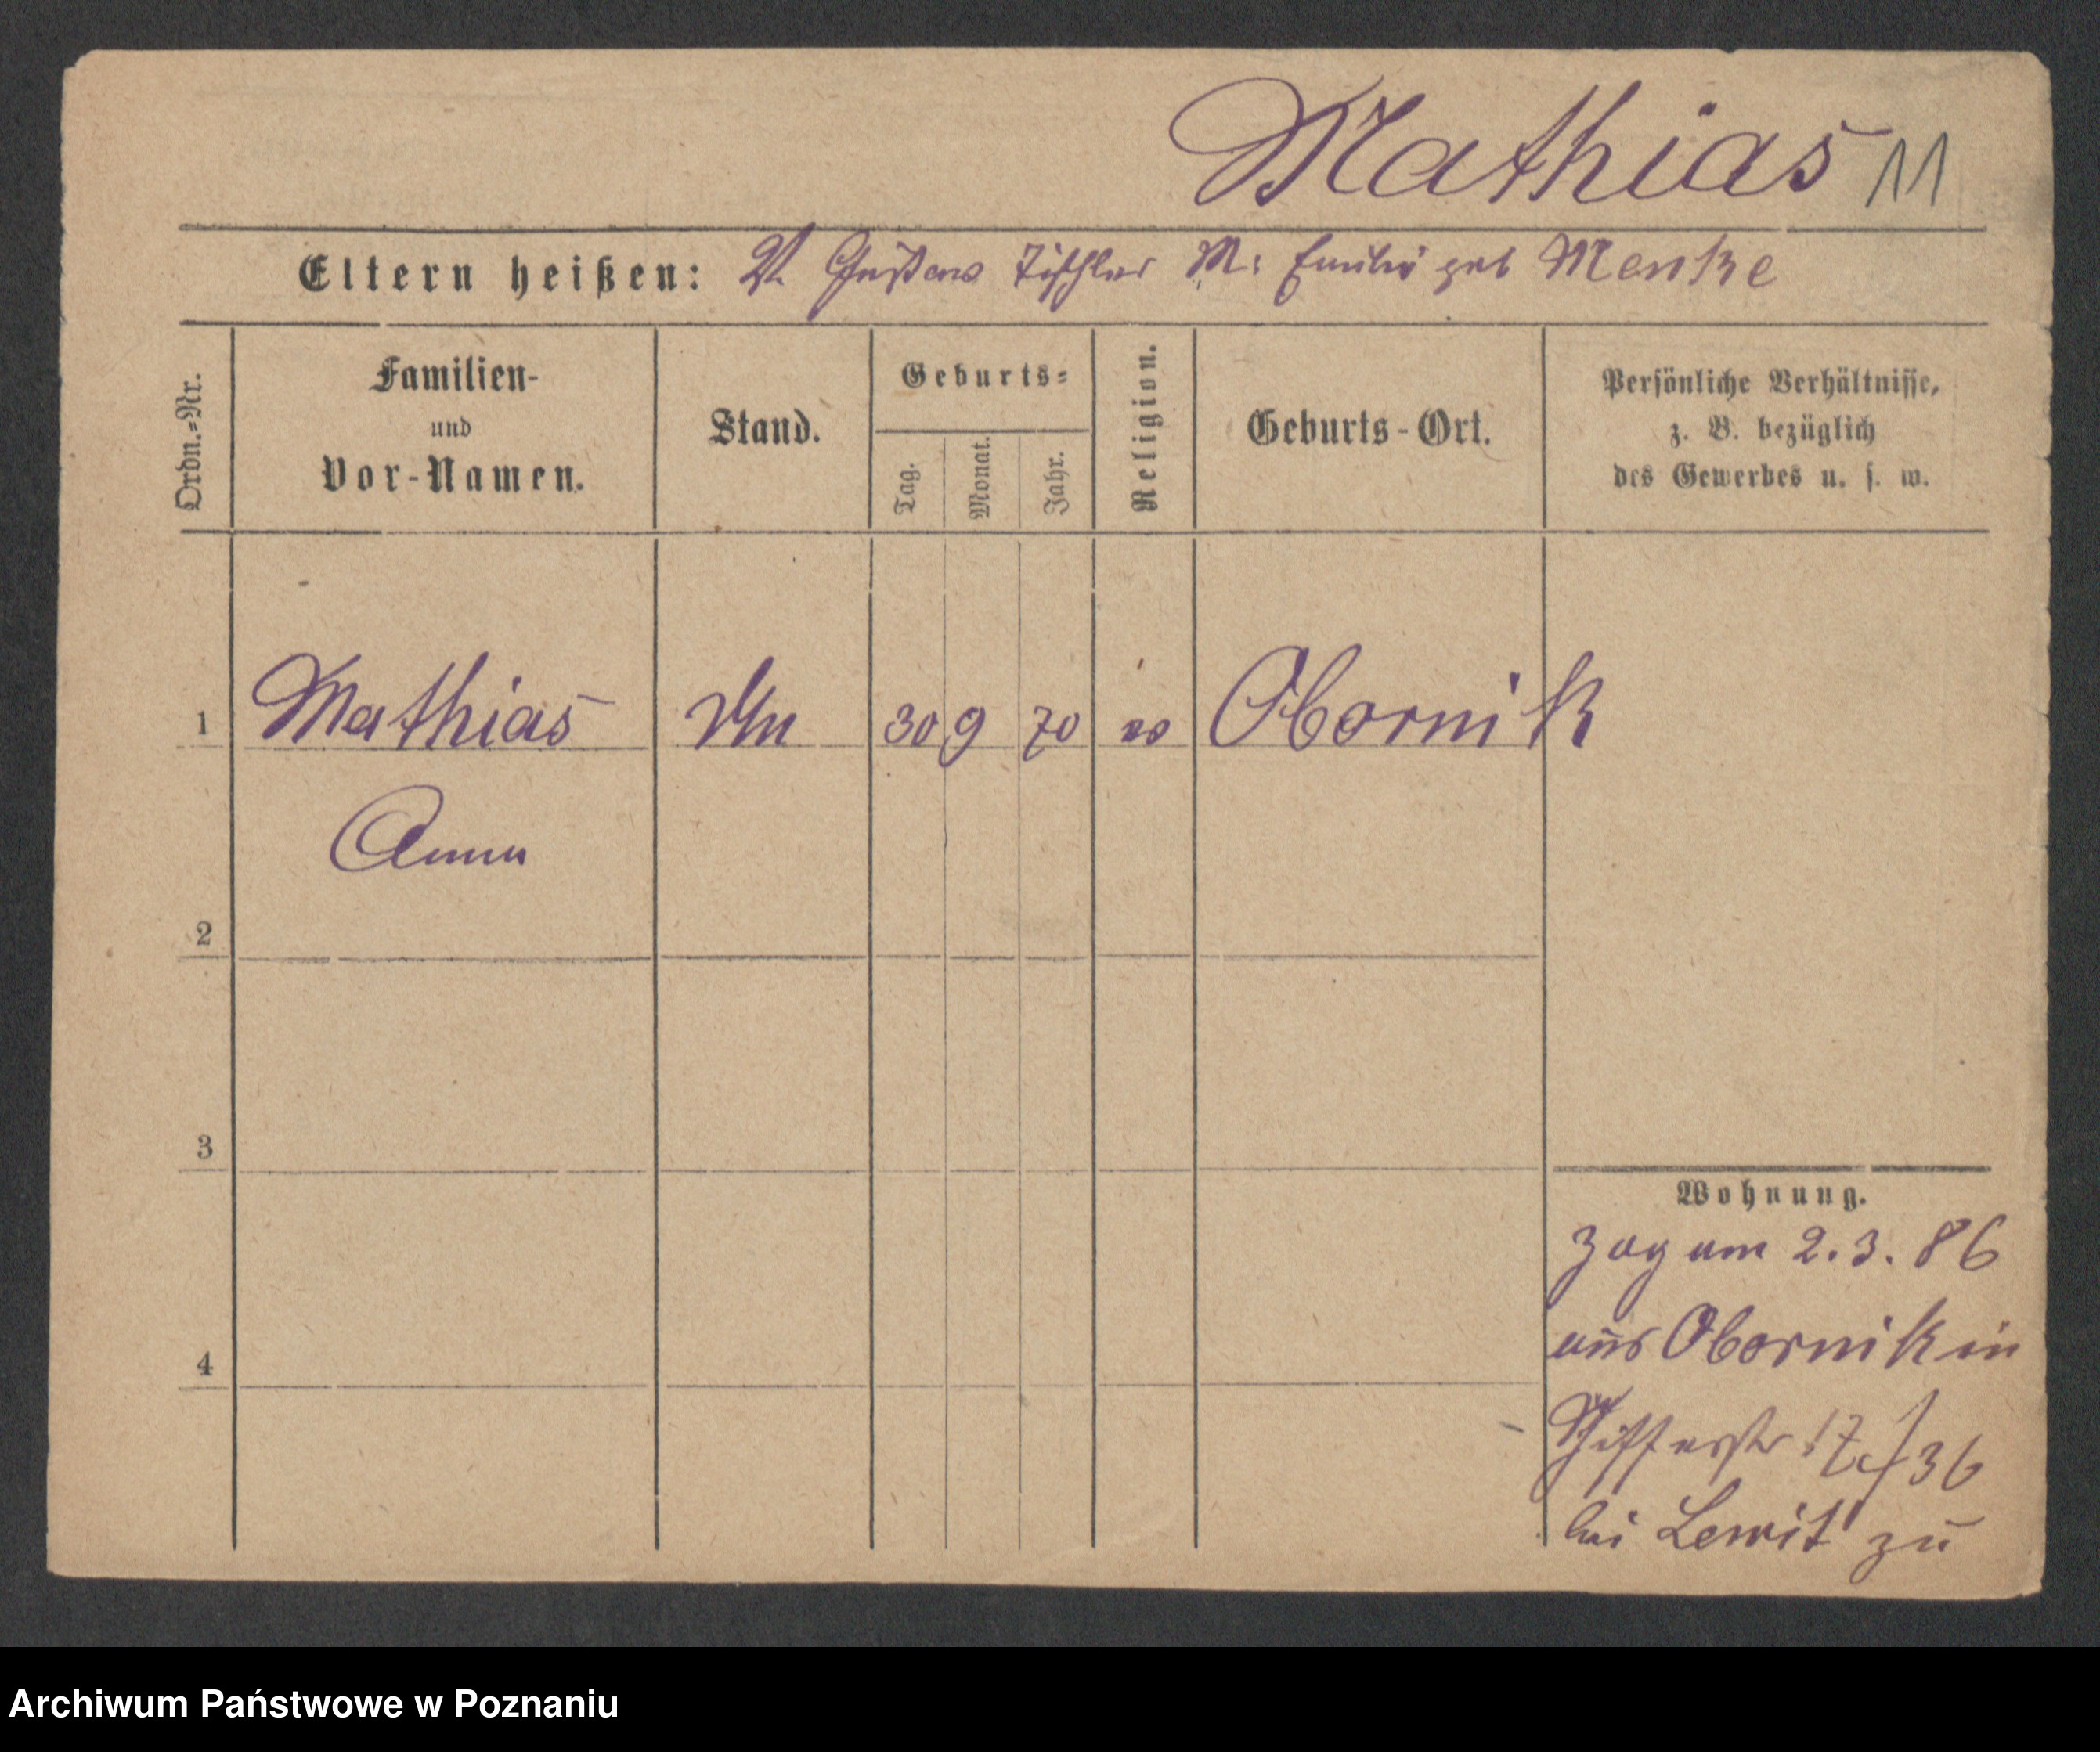 Mathias 11
Eltern heißen: V. Gustav Tischler M: Emilie geb Menke
Ordn.=Nr.
Familien-
und
Vor-Namen.
Stand.
Geburts=
Tag.
Monat.
Jahr.
Religion.
Geburts-Ort.
Persönliche Verhältnisse,
z. B. bezüglich
des Gewerbes u. s. w.
1 Mathias 30 9 70 Obornik
Anna
2
3
4
Wohnung.
Zog am 2.3.86
aus Obornik in
17 36
bei Lewit zu
Archiwum Państwowe w Poznaniu